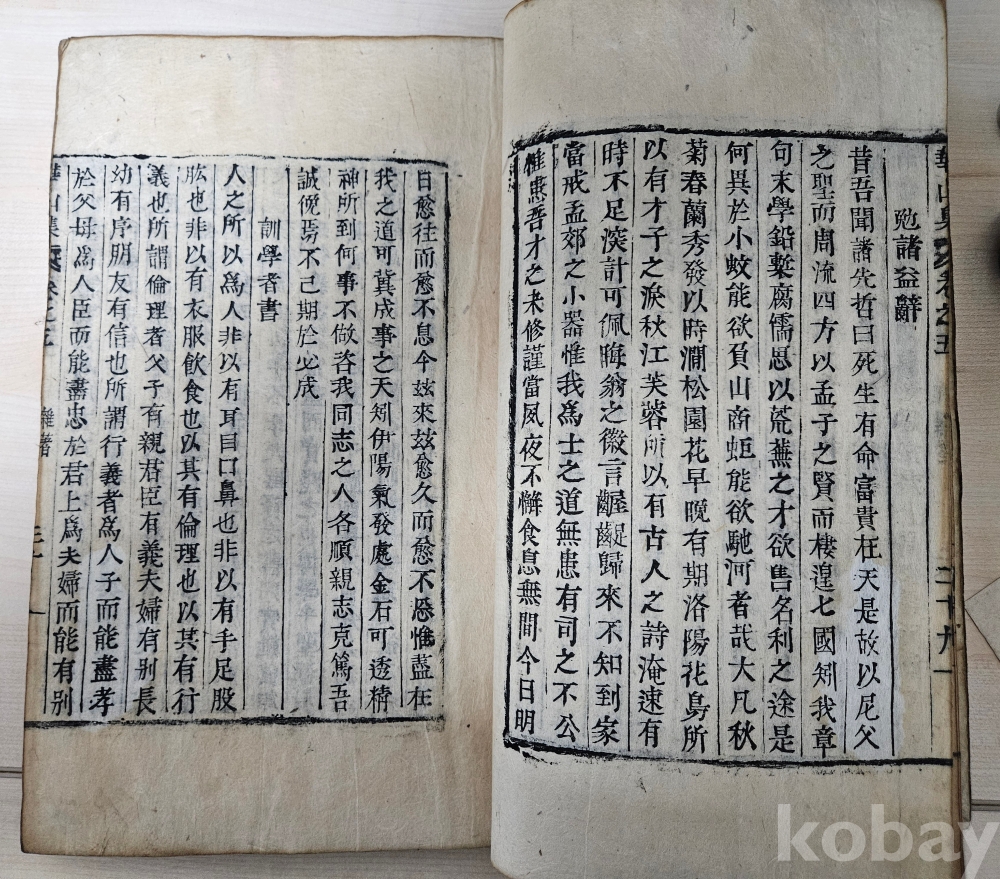 華山集 卷之五
二十九
勉諸益辭
昔吾聞諸先哲曰死生有命富貴在天是故以尼父
之聖而周流四方以孟子之賢而棲遑七國知我章
句末學鉛槧腐儒思以荒蕪之才欲售名利之途是
何異於小蚊能欲負山商蚷能欲馳河者哉大凡秋
菊春蘭秀發以時澗松園花早晚有期洛陽花鳥所
以有才子之淚秋江芙蓉所以有古人之詩淹速有
時不足深計可佩晦翁之徽言齷齪歸來不知到家
當戒孟郊之小器惟我為士之道無患有司之不公
惟患吾才之未修謹當夙夜不懈食息無間今日明
日愈往而愈不息今玆來玆愈久而愈不怠惟盡在
我之道可冀成事之天知伊陽氣發處金石可透精
神所到何事不做咨我同志之人各順親志克篤吾
誠俛焉不已期於必成
訓學者書
人之所以爲人非以有耳目口鼻也非以有手足股
肱也非以有衣服飲食也以其有倫理也以其有行
義也所謂倫理者父子有親君臣有義夫婦有別長
幼有序朋友有信也所謂行義者爲人子而能盡孝
於父母爲人臣而能盡忠於君上爲夫婦而能有別
華山集 卷之五
雜著
kobay